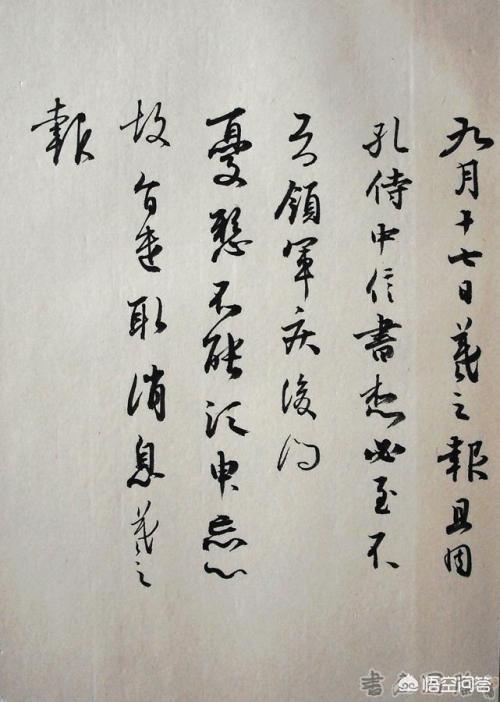 九月十七日羲之報且因
孔侍中信書想必至不
知領軍疾後問
憂懸不能須臾忘心
故旨遣取消息羲之
報
悟空问答